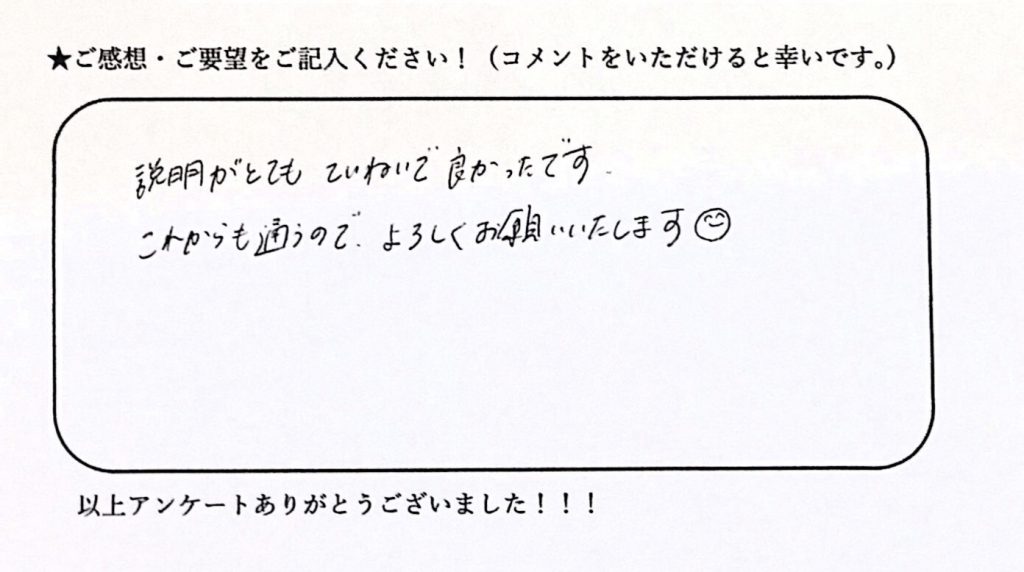 ★ご感想・ご要望をご記入ください！（コメントをいただけると幸いです。）
説明がとても ていねいで 良かったです.
これからも通うので. よろしくお願いいたします☺
以上アンケートありがとうございました！！！